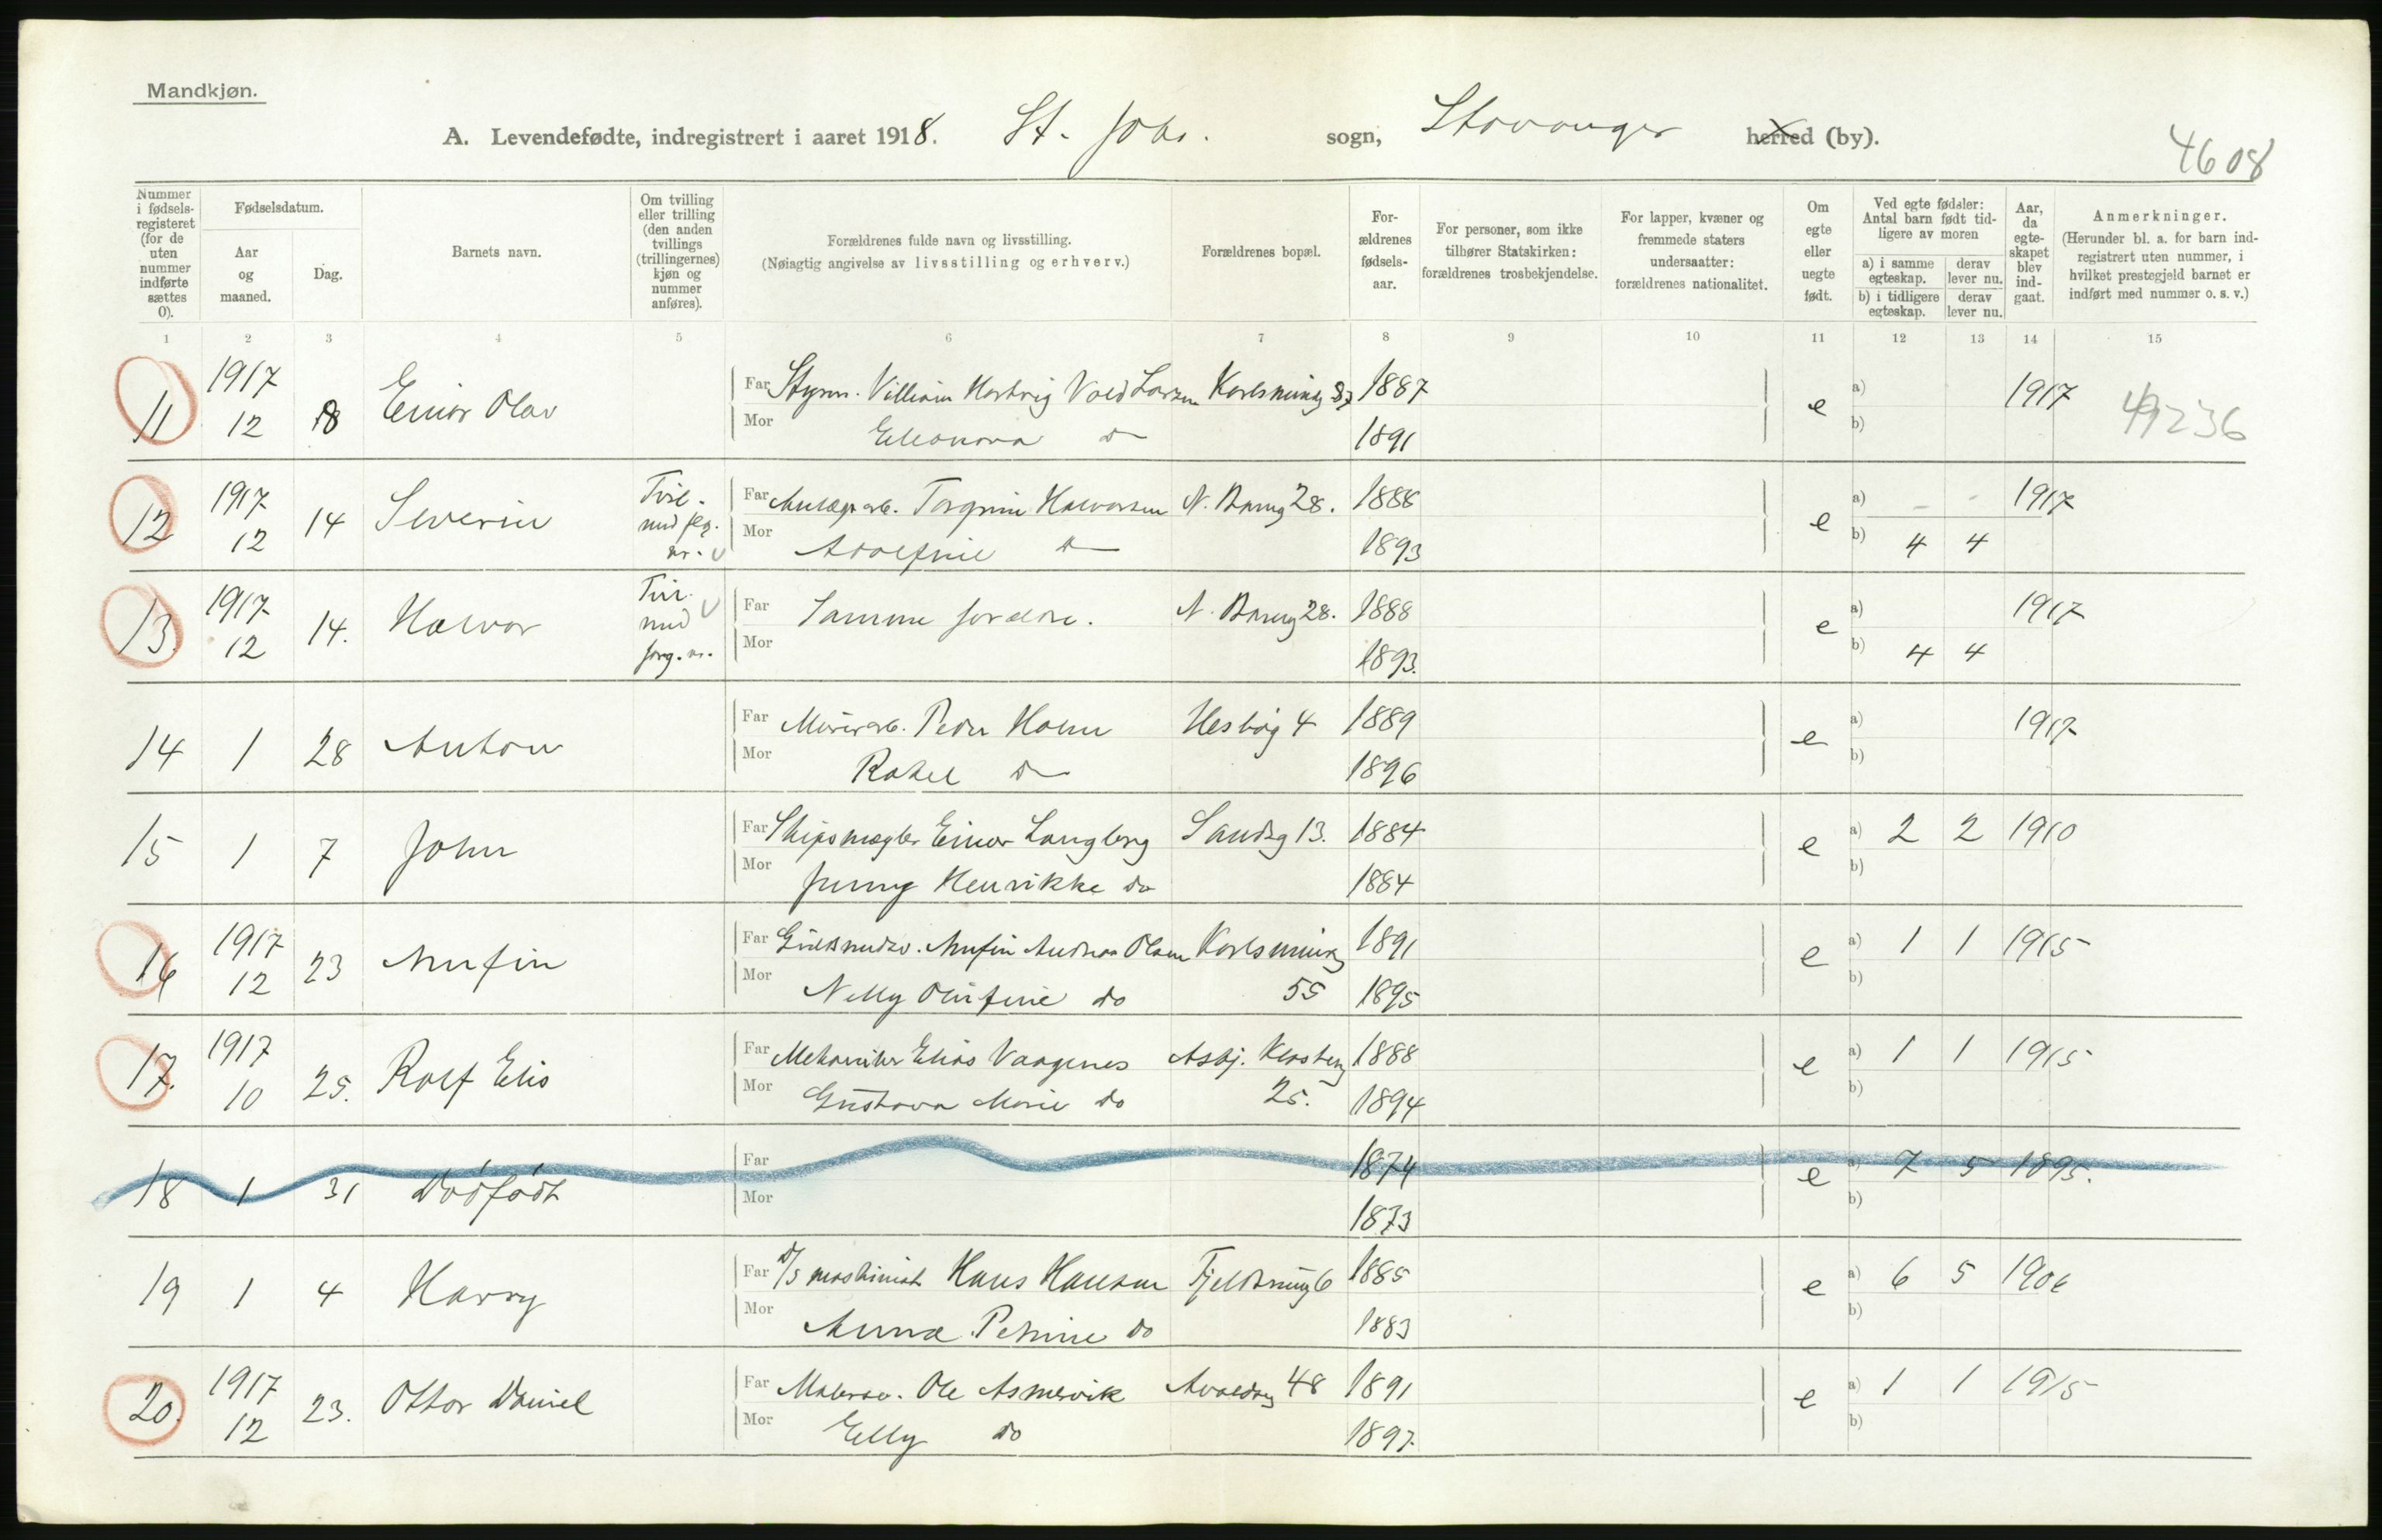 Mandkjøn.
A. Levendefødte, indregistrert i aaret 1918. St. Johs. sogn, Stavanger herred (by).
4608
Nummer i fødsels-registeret (for de uten nummer indførte sættes 0).
Fødselsdatum.
Aar og maaned.
Dag.
Barnets navn.
Om tvilling eller trilling (den anden tvillings (trillingernes) kjøn og nummer anføres).
Forældrenes fulde navn og livsstilling.
(Nøiagtig angivelse av livsstilling og erhverv.)
Forældrenes bopæl.
For-ældrenes fødsels-aar.
For personer, som ikke tilhører Statskirken: forældrenes trosbekjendelse.
For lapper, kvæner og fremmede staters undersaatter: forældrenes nationalitet.
Om egte eller uegte født.
Ved egte fødsler: Antal barn født tid-ligere av moren
a) i samme egteskap.
derav lever nu.
b) i tidligere egteskap.
derav lever nu.
Aar, da egte-skapet blev ind-gaat.
Anmerkninger.
(Herunder bl. a. for barn ind-registrert uten nummer, i hvilket prestegjeld barnet er indført med nummer o. s. v.)
1 2 3 4 5 6 7 8 9 10 11 12 13 14 15
11 1917 12 18 Einar Olav Far Styrm. Villiam Hartvig Vold Larsen 1887 e a) 1917
Mor Eleonora do 1891 b)
49236
12 1917 12 14 Severin Tvil. med flg. nr. Far Torgrim Halvorsen 28. 1888 e a) - - 1917
Mor Adolfine do 1893 b) 4 4
13. 1917 12 14. Halvor Tvil. med forg. nr. Far Samme foreldre. 28. 1888 e a) 1917
Mor 1893. b) 4 4
14 1 28 Anton Far Murerarb. Peder Holm Hesbøg 4 1889 e a) 1917
Mor Rakel do 1896 b)
15 1 7 John Far Skipsmægler Einar Langberg Sandsg 13. 1884 e a) 2 2 1910
Mor Jenny Henrikke do 1884 b)
16 1917 12 23 Arnfin Far Arnfin Andreas Olsen 1891 e a) 1 1 1915
Mor Nelly Olufine do 55 1895 b)
17. 1917 10 25. Rolf Elis Far Mekaniker Elias Vaagenes Asbj. Klosterg 1888 e a) 1 1 1915
Mor Gustava Marie do 25. 1894 b)
18 1 31 Dødfødt Far 1874 e a) 7 5 1895.
Mor 1873 b)
19 1 4 Harry Far D/S maskinist Hans Hansen 6 1885 e a) 6 5 1906
Mor Anna Petrine do 1883 b)
20. 1917 12 23. Ottar Daniel Far Ole Asmervik 48 1891 e a) 1 1 1915
Mor Elly do 1897. b)